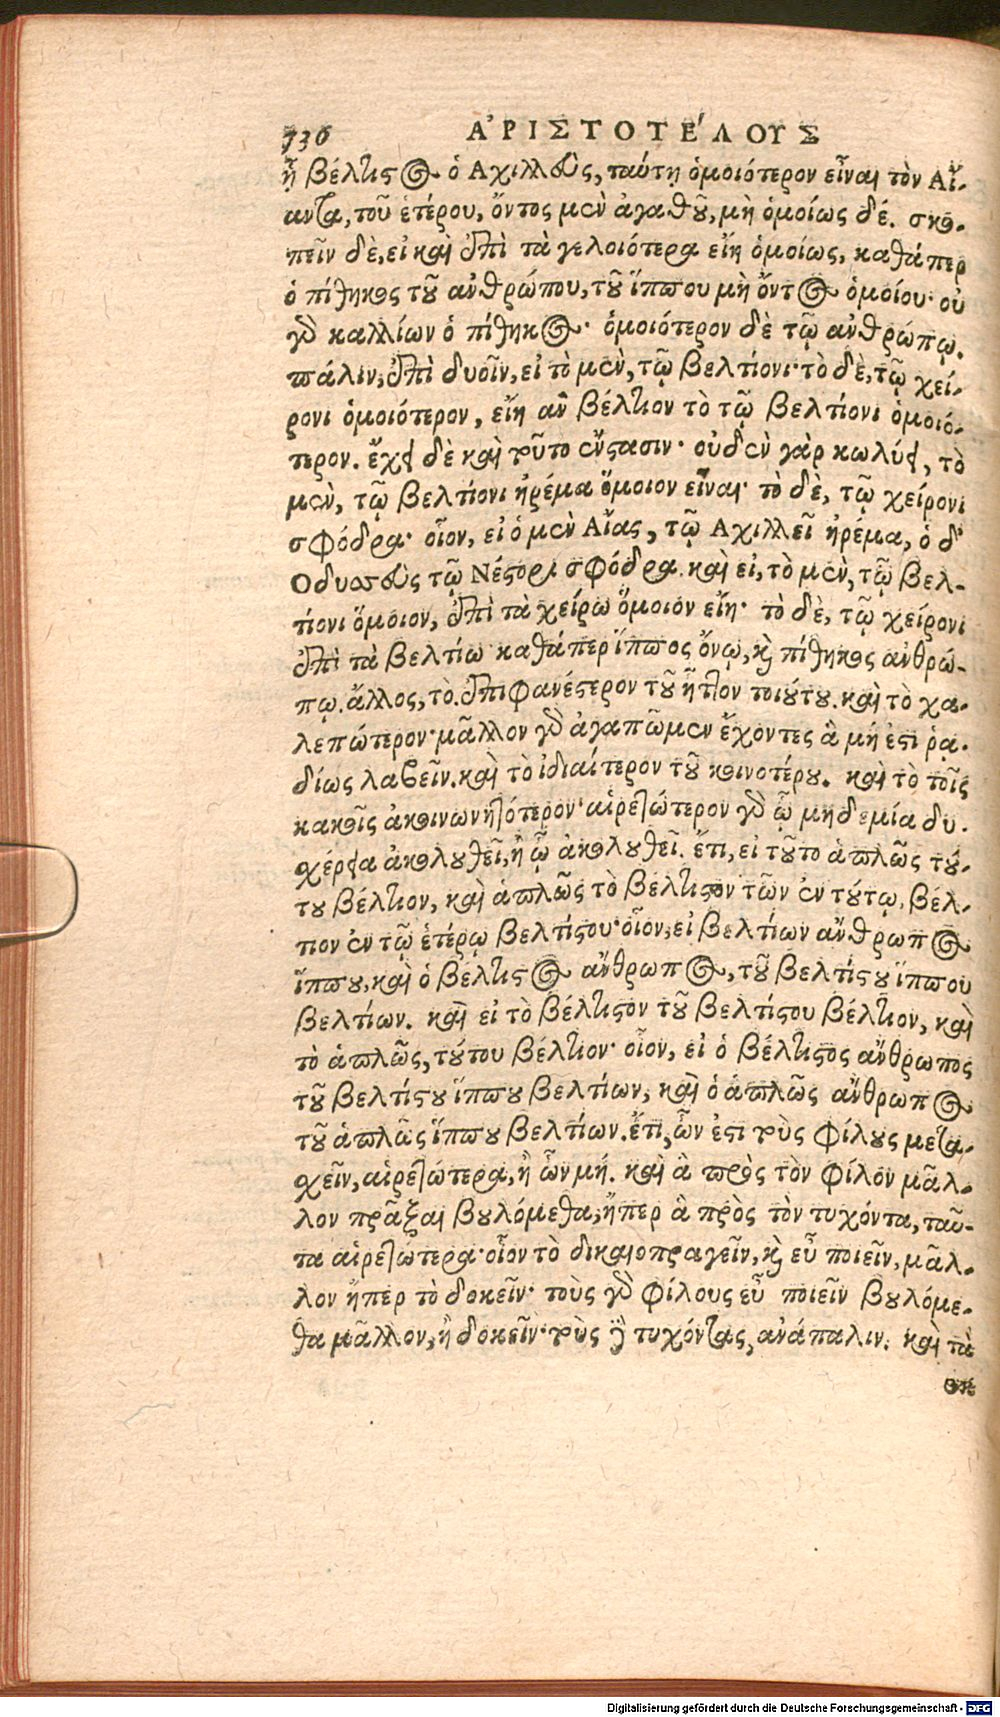 730 ΑΡΙΣΤΟΤΈΛΟΥΣ
ᾗ βέλτιστος ὁ Αχιλλεὺς, ταύτῃ ὁμοιότερον εἶναι τὸν Αἴ-
αντα, τοῦ ἑτέρου, ὄντος μὲν ἀγαθοῦ, μὴ ὁμοίως δέ. σκο-
πεῖν δὲ, εἰ καὶ ἐπὶ τὰ γελοιότερα εἴη ὁμοίως, καθάπερ
ὁ πίθηκος τοῦ ἀνθρώπου, τοῦ ἵππου μὴ ὄντος ὁμοίου· οὐ
γὸ καλλίων ὁ πίθηκος· ὁμοιότερον δὲ τῷ ἀνθρώπῳ.
πάλιν, ἐπὶ δυοῖν, εἰ τὸ μὲν, τῷ βελτίονι· τὸ δὲ, τῷ χεί-
ρονι ὁμοιότερον, εἴη ἂν βέλτιον τὸ τῷ βελτίονι ὁμοιό-
τερον. ἔχει δὲ καὶ τοῦτο ἔνστασιν· οὐδὲν γὰρ κωλύει, τὸ
μὲν, τῷ βελτίονι ἠρέμα ὅμοιον εἶναι· τὸ δὲ, τῷ χείρονι
σφόδρα· οἷον, εἰ ὁ μὲν Αἴας, τῷ Αχιλλεῖ ἠρέμα, ὁ δ'
Οδυσσεὺς τῷ Νέστορι σφόδρα. καὶ εἰ, τὸ μὲν, τῷ βελ-
τίονι ὅμοιον, ἐπὶ τὰ χείρω ὅμοιον εἴη· τὸ δὲ, τῷ χείρονι
ἐπὶ τὰ βελτίω· καθάπερ ἵππος ὄνῳ, καὶ πίθηκος ἀνθρώ-
πῳ. ἄλλος, τὸ ἐπιφανέστερον τοῦ ἧττον τοιούτου. καὶ τὸ χα-
λεπώτερον· μᾶλλον γὸ ἀγαπῶμεν ἔχοντες ἃ μή ἐστι ῥᾳ-
δίως λαβεῖν. καὶ τὸ ἰδιαίτερον τοῦ κοινοτέρου. καὶ τὸ τοῖς
κακοῖς ἀκοινωνητότερον· αἱρετώτερον γὸ ᾧ μηδεμία δυ-
χέρεια ἀκολουθεῖ, ἢ ᾧ ἀκολουθεῖ. ἔτι, εἰ τοῦτο ἁπλῶς τού-
του βέλτιον, καὶ ἁπλῶς τὸ βέλτιστον τῶν ἐν τούτῳ, βέλ-
τιον ἐν τῷ ἑτέρῳ βελτίστου· οἷον, εἰ βελτίων ἄνθρωπος
ἵππου, καὶ ὁ βέλτιστος ἄνθρωπος, τοῦ βελτίστου ἵππου
βελτίων. καὶ εἰ τὸ βέλτιστον τοῦ βελτίστου βέλτιον, καὶ
τὸ ἁπλῶς, τούτου βέλτιον· οἷον, εἰ ὁ βέλτιστος ἄνθρωπος
τοῦ βελτίστου ἵππου βελτίων, καὶ ὁ ἁπλῶς ἄνθρωπος
τοῦ ἁπλῶς ἵππου βελτίων. ἔτι, ὧν ἐστι τοὺς φίλους μετα-
χεῖν, αἱρετώτερα, ἢ ὧν μή. καὶ ἃ πρὸς τὸν φίλον μᾶλ-
λον πρᾶξαι βουλόμεθα, ἤπερ ἃ πρὸς τὸν τυχόντα, ταῦ-
τα αἱρετώτερα· οἷον τὸ δικαιοπραγεῖν, καὶ εὖ ποιεῖν, μᾶλ-
λον ἤπερ τὸ δοκεῖν· τοὺς γὸ φίλους εὖ ποιεῖν βουλόμε-
θα μᾶλλον, ἢ δοκεῖν· τοὺς δὲ τυχόντας, ἀνάπαλιν. καὶ τὰ
ἐκ
Digitalisierung gefördert durch die Deutsche Forschungsgemeinschaft - DFG